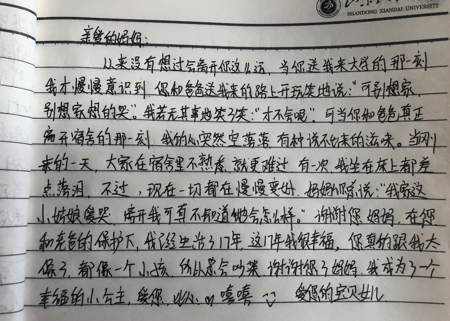 SHANDONG XIANDAI UNIVERSITY
亲爱的妈妈:
从来没有想过会离开你这么远,当你送我来大学的那一刻
我才慢慢意识到,你和爸爸送我来的路上开玩笑地说:“可别想家,
别想家想的哭”。我若无其事地笑了笑:“才不会呢”。可当你和爸爸真正
离开宿舍的那一刻,我的心突然空落落,有种说不出来的滋味。当刚
来的一天,大家在宿舍里不熟悉,就更难过,有一次,我坐在床上都差
点落泪,不过,现在一切都在慢慢变好,妈妈你常说:“我家这
小姑娘爱哭,离开我可真不知道她会怎么样。”谢谢你,妈妈,在您
和爸爸的保护下,我已经生活了17年,这17年我很幸福。你真的跟我太
像了,都像一个小孩,所以总会吵架,谢谢您了妈妈,我成为了一个
幸福的小公主,爱您,嘻嘻 爱您的宝贝女儿